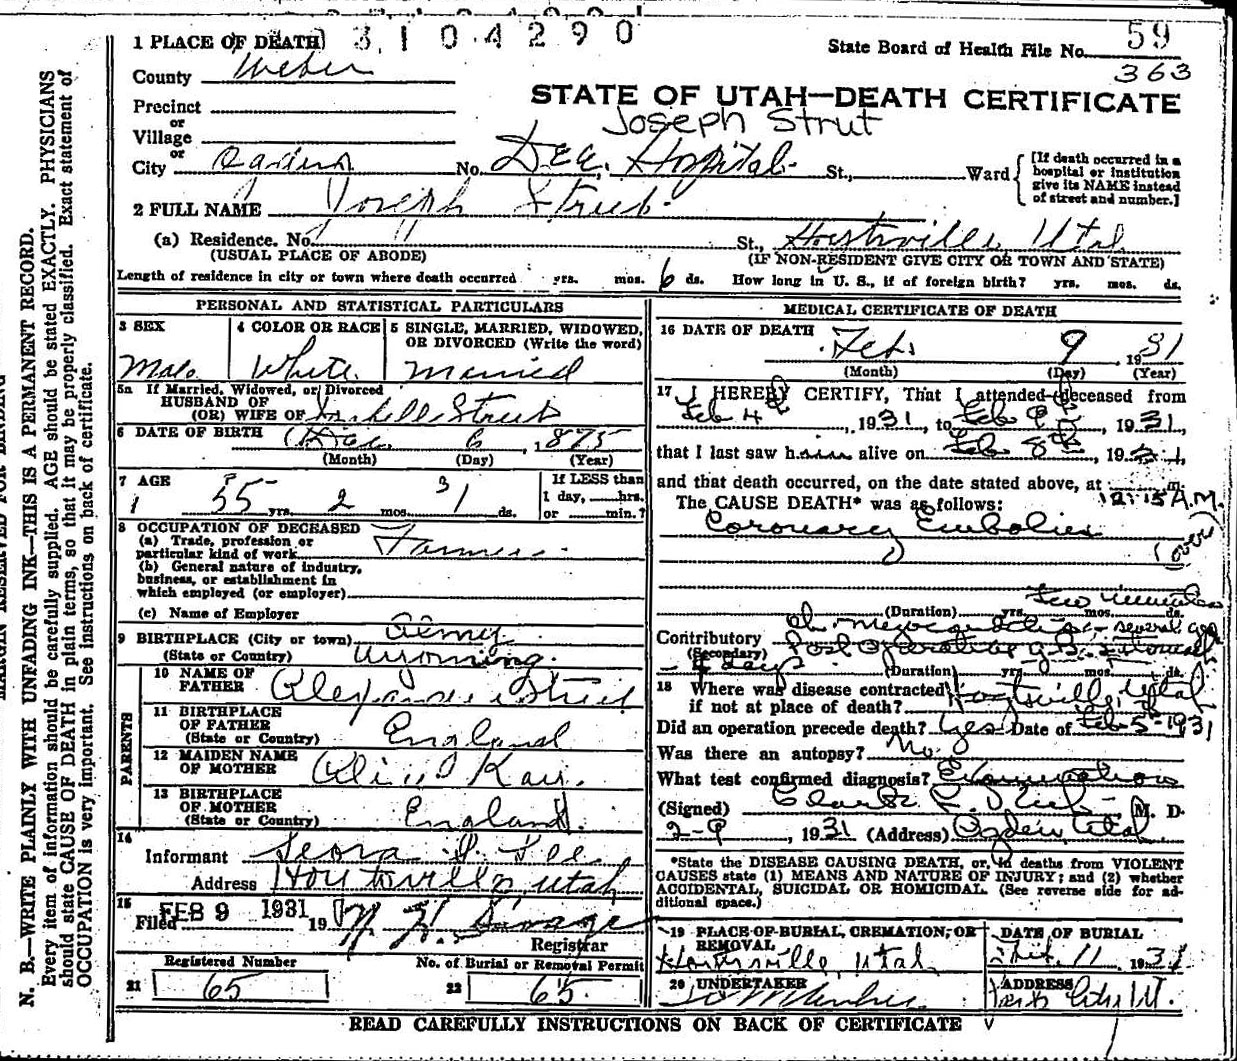 3 1 0 4 2 9 0
1 PLACE OF DEATH
State Board of Health File No. 59
363
County Weber
STATE OF UTAH—DEATH CERTIFICATE
Joseph Strut
Precinct
or
Village
or
City Ogden No. Dee Hospital St., Ward
[If death occurred in a
hospital or institution
give its NAME instead
of street and number.]
2 FULL NAME Joseph
(a) Residence. No. St., Utah
(USUAL PLACE OF ABODE) (IF NON-RESIDENT GIVE CITY OR TOWN AND STATE)
Length of residence in city or town where death occurred yrs. mos. 6 ds. How long in U. S., if of foreign birth? yrs. mos. ds.
PERSONAL AND STATISTICAL PARTICULARS
3 SEX
Male
4 COLOR OR RACE
White
5 SINGLE, MARRIED, WIDOWED,
OR DIVORCED (Write the word)
Married
5a If Married, Widowed, or Divorced
HUSBAND OF
(OR) WIFE OF
6 DATE OF BIRTH Dec 6, 1875
(Month) (Day) (Year)
7 AGE
55 yrs. 2 mos. 3 ds.
If LESS than
1 day, hrs.
or min.?
8 OCCUPATION OF DECEASED
(a) Trade, profession or
particular kind of work Farmer
(b) General nature of industry,
business, or establishment in
which employed (or employer)
(c) Name of Employer
9 BIRTHPLACE (City or town)
(State or Country) Wyoming.
PARENTS
10 NAME OF
FATHER
11 BIRTHPLACE
OF FATHER
(State or Country) England
12 MAIDEN NAME
OF MOTHER
13 BIRTHPLACE
OF MOTHER
(State or Country) England.
14
Informant
Address Utah
15
Filed FEB 9 1931 19
Registrar
Registered Number
21 65
No. of Burial or Removal Permit
22 65.
MEDICAL CERTIFICATE OF DEATH
16 DATE OF DEATH
Feb. 9, 1931
(Month) (Day) (Year)
17 I HEREBY CERTIFY, That I attended deceased from
Feb 4th, 1931, to Feb 9th, 1931,
that I last saw him alive on Feb 8th, 1931,
and that death occurred, on the date stated above, at m.
12:15 A.M.
The CAUSE DEATH* was as follows:
Coronary Embolism
(over)
(Duration) yrs. mos. ds.
Contributory
(Secondary) Post Operative
4 days (Duration) yrs. ds.
18 Where was disease contracted
if not at place of death? Utah
Did an operation precede death? Yes Date of Feb-5-1931
Was there an autopsy? No.
What test confirmed diagnosis?
(Signed) M. D.
2-9, 1931 (Address) Ogden Utah
*State the DISEASE CAUSING DEATH, or, in deaths from VIOLENT
CAUSES state (1) MEANS AND NATURE OF INJURY; and (2) whether
ACCIDENTAL, SUICIDAL OR HOMICIDAL. (See reverse side for ad-
ditional space.)
19 PLACE OF BURIAL, CREMATION, OR
REMOVAL
Utah
DATE OF BURIAL
11, 1931
20 UNDERTAKER
ADDRESS
City Ut.
READ CAREFULLY INSTRUCTIONS ON BACK OF CERTIFICATE
MARGIN RESERVED FOR BINDING
N. B.—WRITE PLAINLY WITH UNFADING INK—THIS IS A PERMANENT RECORD.
Every item of information should be carefully supplied. AGE should be stated EXACTLY. PHYSICIANS
should state CAUSE OF DEATH in plain terms, so that it may be properly classified. Exact statement of
OCCUPATION is very important. See instructions on back of certificate.